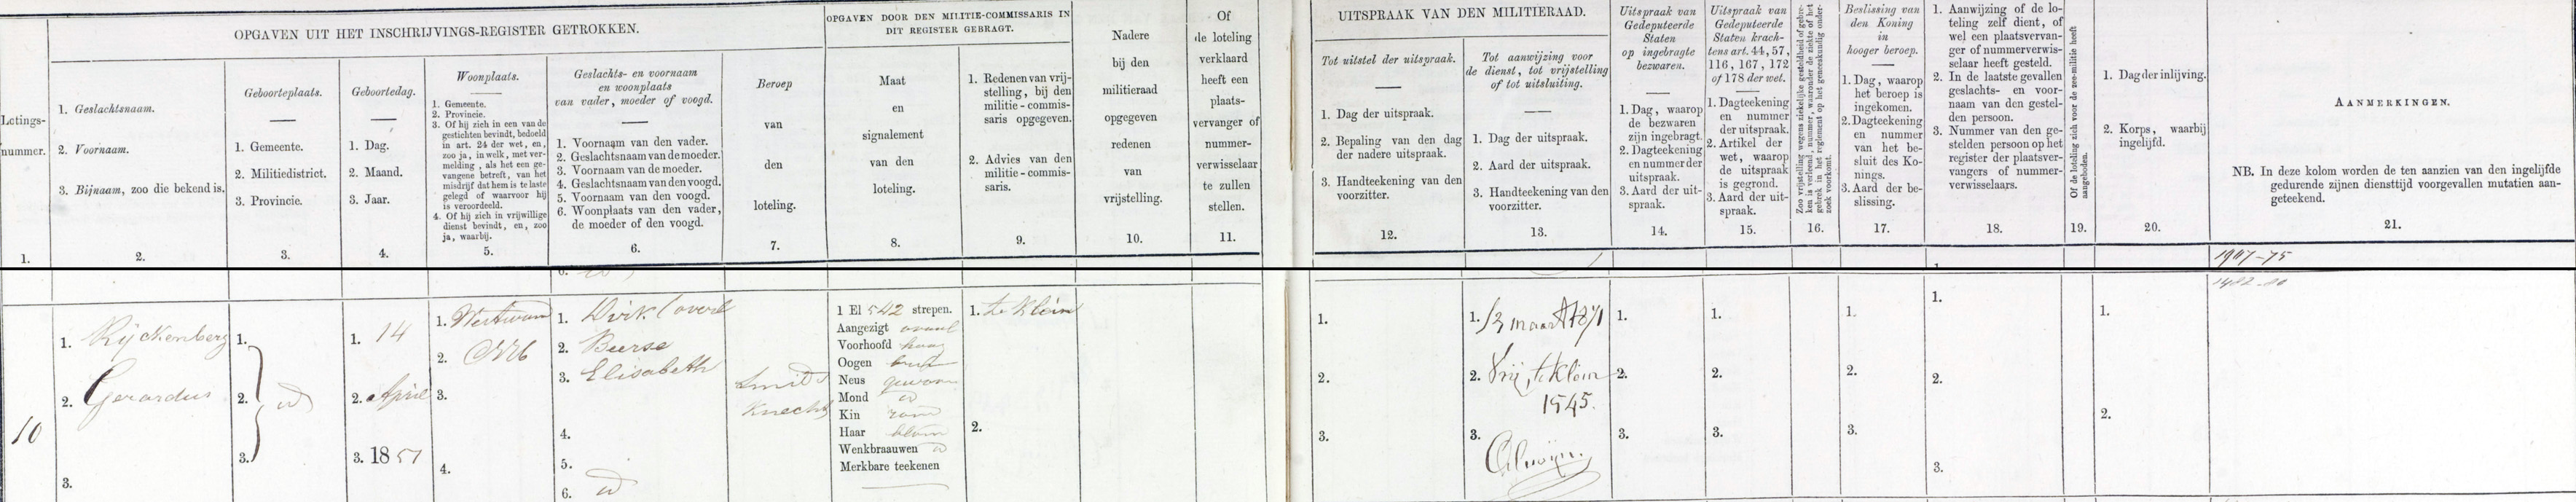 OPGAVEN UIT HET INSCHRIJVINGS-REGISTER GETROKKEN.
Lotings-
nummer.
1.
1. Geslachtsnaam.
2. Voornaam.
3. Bijnaam, zoo die bekend is.
2.
Geboorteplaats.
1. Gemeente.
2. Militiedistrict.
3. Provincie.
3.
Geboortedag.
1. Dag.
2. Maand.
3. Jaar.
4.
Woonplaats.
1. Gemeente.
2. Provincie.
3. Of hij zich in een van de
gestichten bevindt, bedoeld
in art. 24 der wet, en,
zoo ja, in welk, met ver-
melding, als het een ge-
vangene betreft, van het
misdrijf dat hem is te laste
gelegd of waarvoor hij
is veroordeeld.
4. Of hij zich in vrijwillige
dienst bevindt, en, zoo
ja, waarbij.
5.
Geslachts- en voornaam
en woonplaats
van vader, moeder of voogd.
1. Voornaam van den vader.
2. Geslachtsnaam van de moeder.
3. Voornaam van de moeder.
4. Geslachtsnaam van den voogd.
5. Voornaam van den voogd.
6. Woonplaats van den vader,
de moeder of den voogd.
6.
Beroep
van
den
loteling.
7.
OPGAVEN DOOR DEN MILITIE-COMMISSARIS IN
DIT REGISTER GEBRAGT.
Maat
en
signalement
van den
loteling.
8.
1. Redenen van vrij-
stelling, bij den
militie-commis-
saris opgegeven.
2. Advies van den
militie-commis-
saris.
9.
Nadere
bij den
militieraad
opgegeven
redenen
van
vrijstelling.
10.
Of
de loteling
verklaard
heeft een
plaats-
vervanger of
nummer-
verwisselaar
te zullen
stellen.
11.
UITSPRAAK VAN DEN MILITIERAAD.
Tot uitstel der uitspraak.
1. Dag der uitspraak.
2. Bepaling van den dag
der nadere uitspraak.
3. Handteekening van den
voorzitter.
12.
Tot aanwijzing voor
de dienst, tot vrijstelling
of tot uitsluiting.
1. Dag der uitspraak.
2. Aard der uitspraak.
3. Handteekening van den
voorzitter.
13.
Uitspraak van
Gedeputeerde
Staten
op ingebragte
bezwaren.
1. Dag, waarop
de bezwaren
zijn ingebragt.
2. Dagteekening
en nummer der
uitspraak.
3. Aard der uit-
spraak.
14.
Uitspraak van
Gedeputeerde
Staten krach-
tens art. 44, 57,
116, 167, 172
of 178 der wet.
1. Dagteekening
en nummer
der uitspraak.
2. Artikel der
wet, waarop
de uitspraak
is gegrond.
3. Aard der uit-
spraak.
15.
Zoo vrijstelling wegens ziekelijke gesteldheid of gebre-
ken is verleend, nummer, waaronder de ziekte of het
gebrek in het reglement op het geneeskundig onder-
zoek voorkomt.
16.
Beslissing van
den Koning
in
hooger beroep.
1. Dag, waarop
het beroep is
ingekomen.
2. Dagteekening
en nummer
van het be-
sluit des Ko-
nings.
3. Aard der be-
slissing.
17.
1. Aanwijzing of de lo-
teling zelf dient, of
wel een plaatsvervan-
ger of nummerverwis-
selaar heeft gesteld.
2. In de laatste gevallen
geslachts- en voor-
naam van den gestel-
den persoon.
3. Nummer van den ge-
stelden persoon op het
register der plaatsver-
vangers of nummer-
verwisselaars.
18.
Of de loteling zich voor de zee-militie heeft
aangeboden.
19.
1. Dag der inlijving.
2. Korps, waarbij
ingelijfd.
20.
AANMERKINGEN.
NB. In deze kolom worden de ten aanzien van den ingelijfde
gedurende zijnen diensttijd voorgevallen mutatien aan-
geteekend.
21.
1907-75
10
1. Rijckenberg
2. Gerardus
3.
1.
2. id
3.
1. 14
2. April
3. 1851
1. Westwoud
2.
3.
4.
1. Dirk (overl
2. Beerse
3. Elisabeth
4.
5.
6. id
Smids
Knecht
1 El 542 strepen.
Aangezigt ovaal
Voorhoofd hoog
Oogen bruin
Neus gewoon
Mond id
Kin rond
Haar blond
Wenkbraauwen id
Merkbare teekenen
1. te klein
2.
1.
2.
3.
1. 13 maart 1871
2. Vrij, te klein
1545.
3.
1.
2.
3.
1.
2.
3.
1.
2.
3.
1.
2.
3.
1.
2.